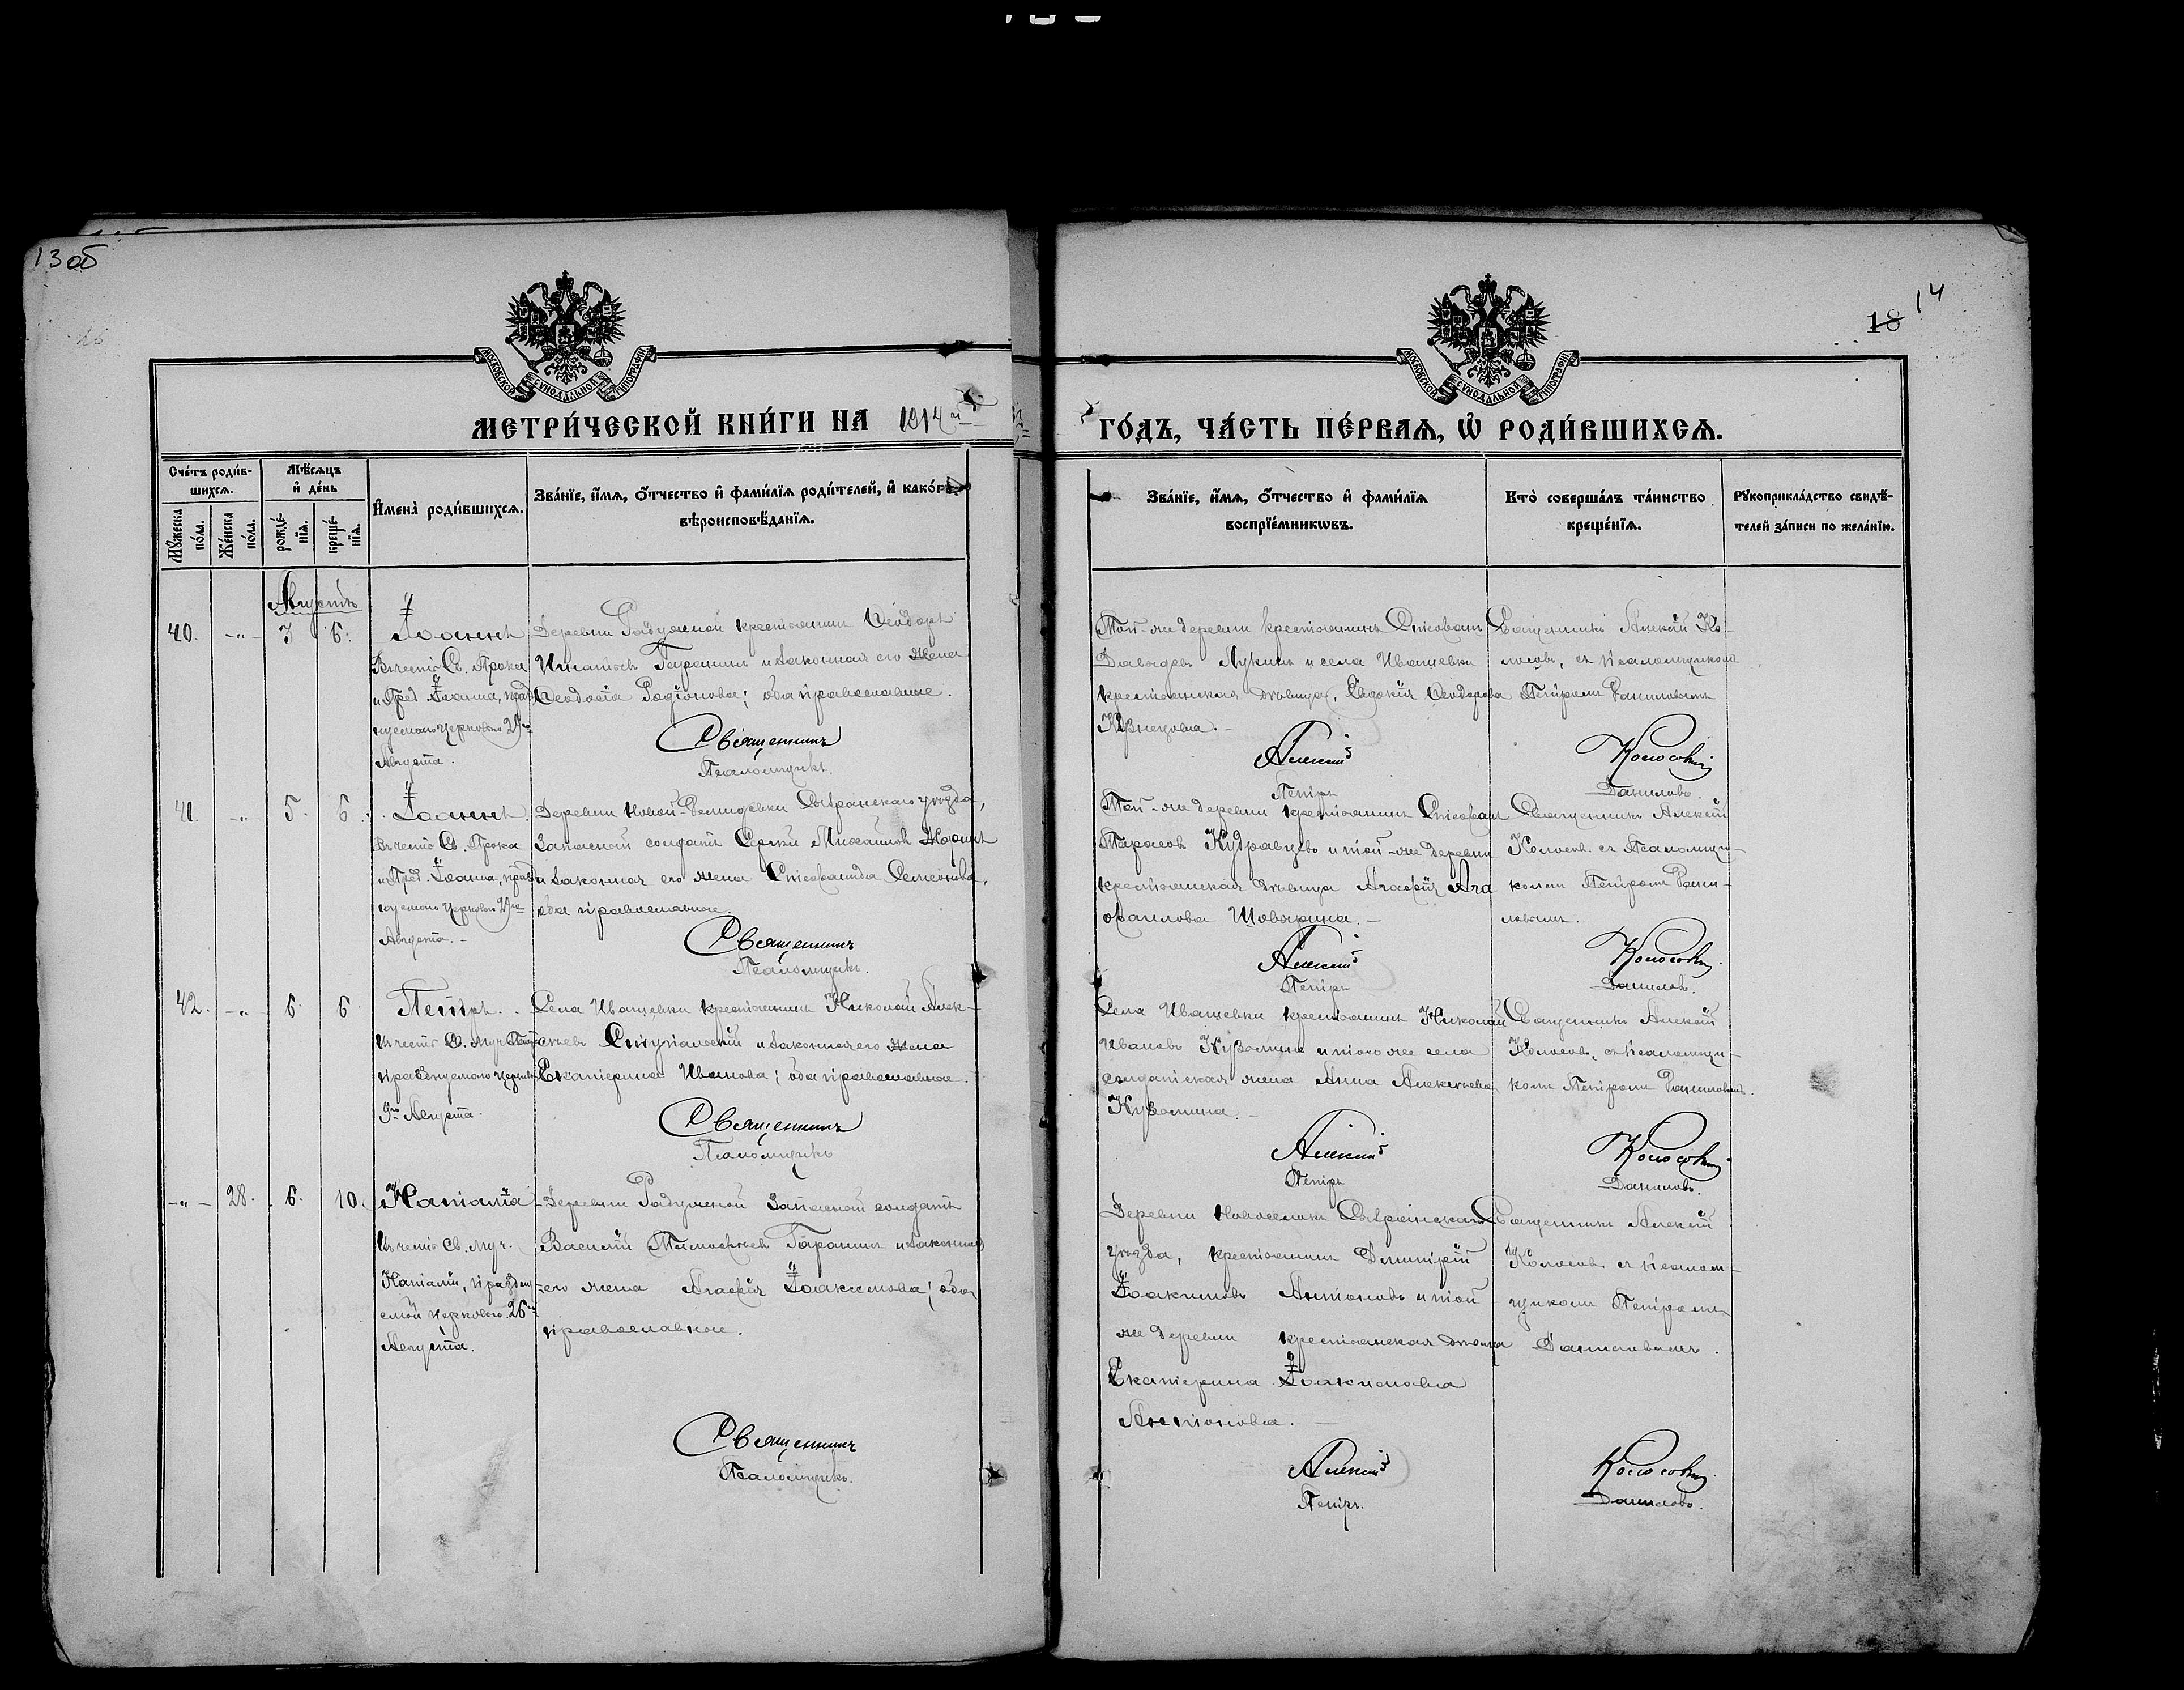 13 об
14
18
МОСКОВСКОЙ СѴНОДАЛЬНОЙ ТИПОГРАФІИ
МОСКОВСКОЙ СѴНОДАЛЬНОЙ ТИПОГРАФІИ
МЕТРИ́ЧЕСКОЙ КНИ́ГИ НА 1914 й
ГО́ДЪ, ЧА́СТЬ ПЕ́РВАѦ, Ѡ҆ РОДИ́ВШИХСѦ.
Сче́тъ роди́в-
шихсѧ.
Мѣ́сѧцъ
и҆ де́нь
Мꙋ́жеска по́ла.
Же́нска по́ла.
рожде́-нїѧ.
креще́-нїѧ.
И҆мена̀ роди́вшихсѧ.
Зва́нїе, и҆́мѧ, ѻ҆́тчество и҆ фами́лїѧ роди́телей, и҆ како́гѡ
вѣроисповѣ́данїѧ.
Зва́нїе, и҆́мѧ, ѻ҆́тчество и҆ фами́лїѧ
воспрїе́мникѡвъ.
Кто̀ соверша́лъ та́инство
креще́нїѧ.
Рꙋкоприкла́дство свидѣ́-
телей за́писи по жела́нїю.
Августъ
40. -"- 3 6.
Іоаннъ
Въ честь Св. Прока
и Пред. Іоанна, праздн
нуемаго церковью 29го
Августа.
Деревни Радужной крестьянинъ Ѳеодоръ
Игнатьевъ Гаранинъ и законная его жена
Ѳеодосія Родіонова; оба православные.
Священникъ
Псаломщикъ.
Той-же деревни крестьянинъ Стефанъ
Давыдовъ Лукинъ и села Иващевки
крестьянская дѣвица, Евдокія Ѳеодорова
Кузнецова.-
Алексій
Петръ
Священникъ Алексій Ко-
лосовъ, съ псаломщикомъ
Петромъ Даниловымъ
Колосовъ
Даниловъ.
41. -"- 5. 6.
Іоаннъ
Въ честь Св. Прока
и Пред. Іоанна, праздн
нуемаго Церковью 29го
Августа.-
Деревни Новой- Сызранскаго уѣзда,
Запасной солдатъ Сергѣй Михаиловъ
и законная его жена Степанида Семенова,
оба православные.
Священникъ
Псаломщикъ.
Той-же деревни крестьянинъ Стефанъ
Тарасовъ Кудравцевъ и той-же деревни
крестьянская дѣвица Агафія Ага
фоилова .-
Алексій
Петръ
Священникъ Алексій
Колосовъ. съ Псаломщи-
комъ Петромъ Дани-
ловымъ.
Колосовъ.
Даниловъ.
42. -"- 6. 6
Петръ.
Въ честь Св. Муч.
празднуемаго Церковью
9го Августа.
Села Иващевки крестьянинъ Николай Алек-
сѣевъ и законная его жена
Екатерина Иванова; оба православные.
Священникъ
Псаломщикъ
Села Иващевки крестьянинъ Николай
Ивановъ Кузьминъ и того же села
солдатская жена Анна Алексѣева
Кузьмина.-
Алексій
Петръ
Священникъ Алексій
Колосовъ, съ псаломщи-
комъ Петромъ Даниловымъ.
Колосовъ
Даниловъ.
-"- 28. 6. 10.
Наталія
Въ честь св. муч.
Наталіи, праздну-
емой церковью 26го
Августа.
Деревни Радужной Запасной солдатъ
Василій Тимоѳеевъ Гаранинъ и законная
его жена Агафія Іоакимова; оба
православные.
Священникъ
Псаломщикъ.
Деревни Новоселокъ Сызранскаго
уѣзда, крестьянинъ Димитрій
Іоакимовъ Антоновъ и той
же деревни крестьянская дѣвица
Екатерина Іоакимова
Антонова.-
Алексій
Петръ.
Священникъ Алексій
Колосовъ съ псалом-
щикомъ Петромъ
Даниловымъ.
Колосовъ.
Даниловъ.